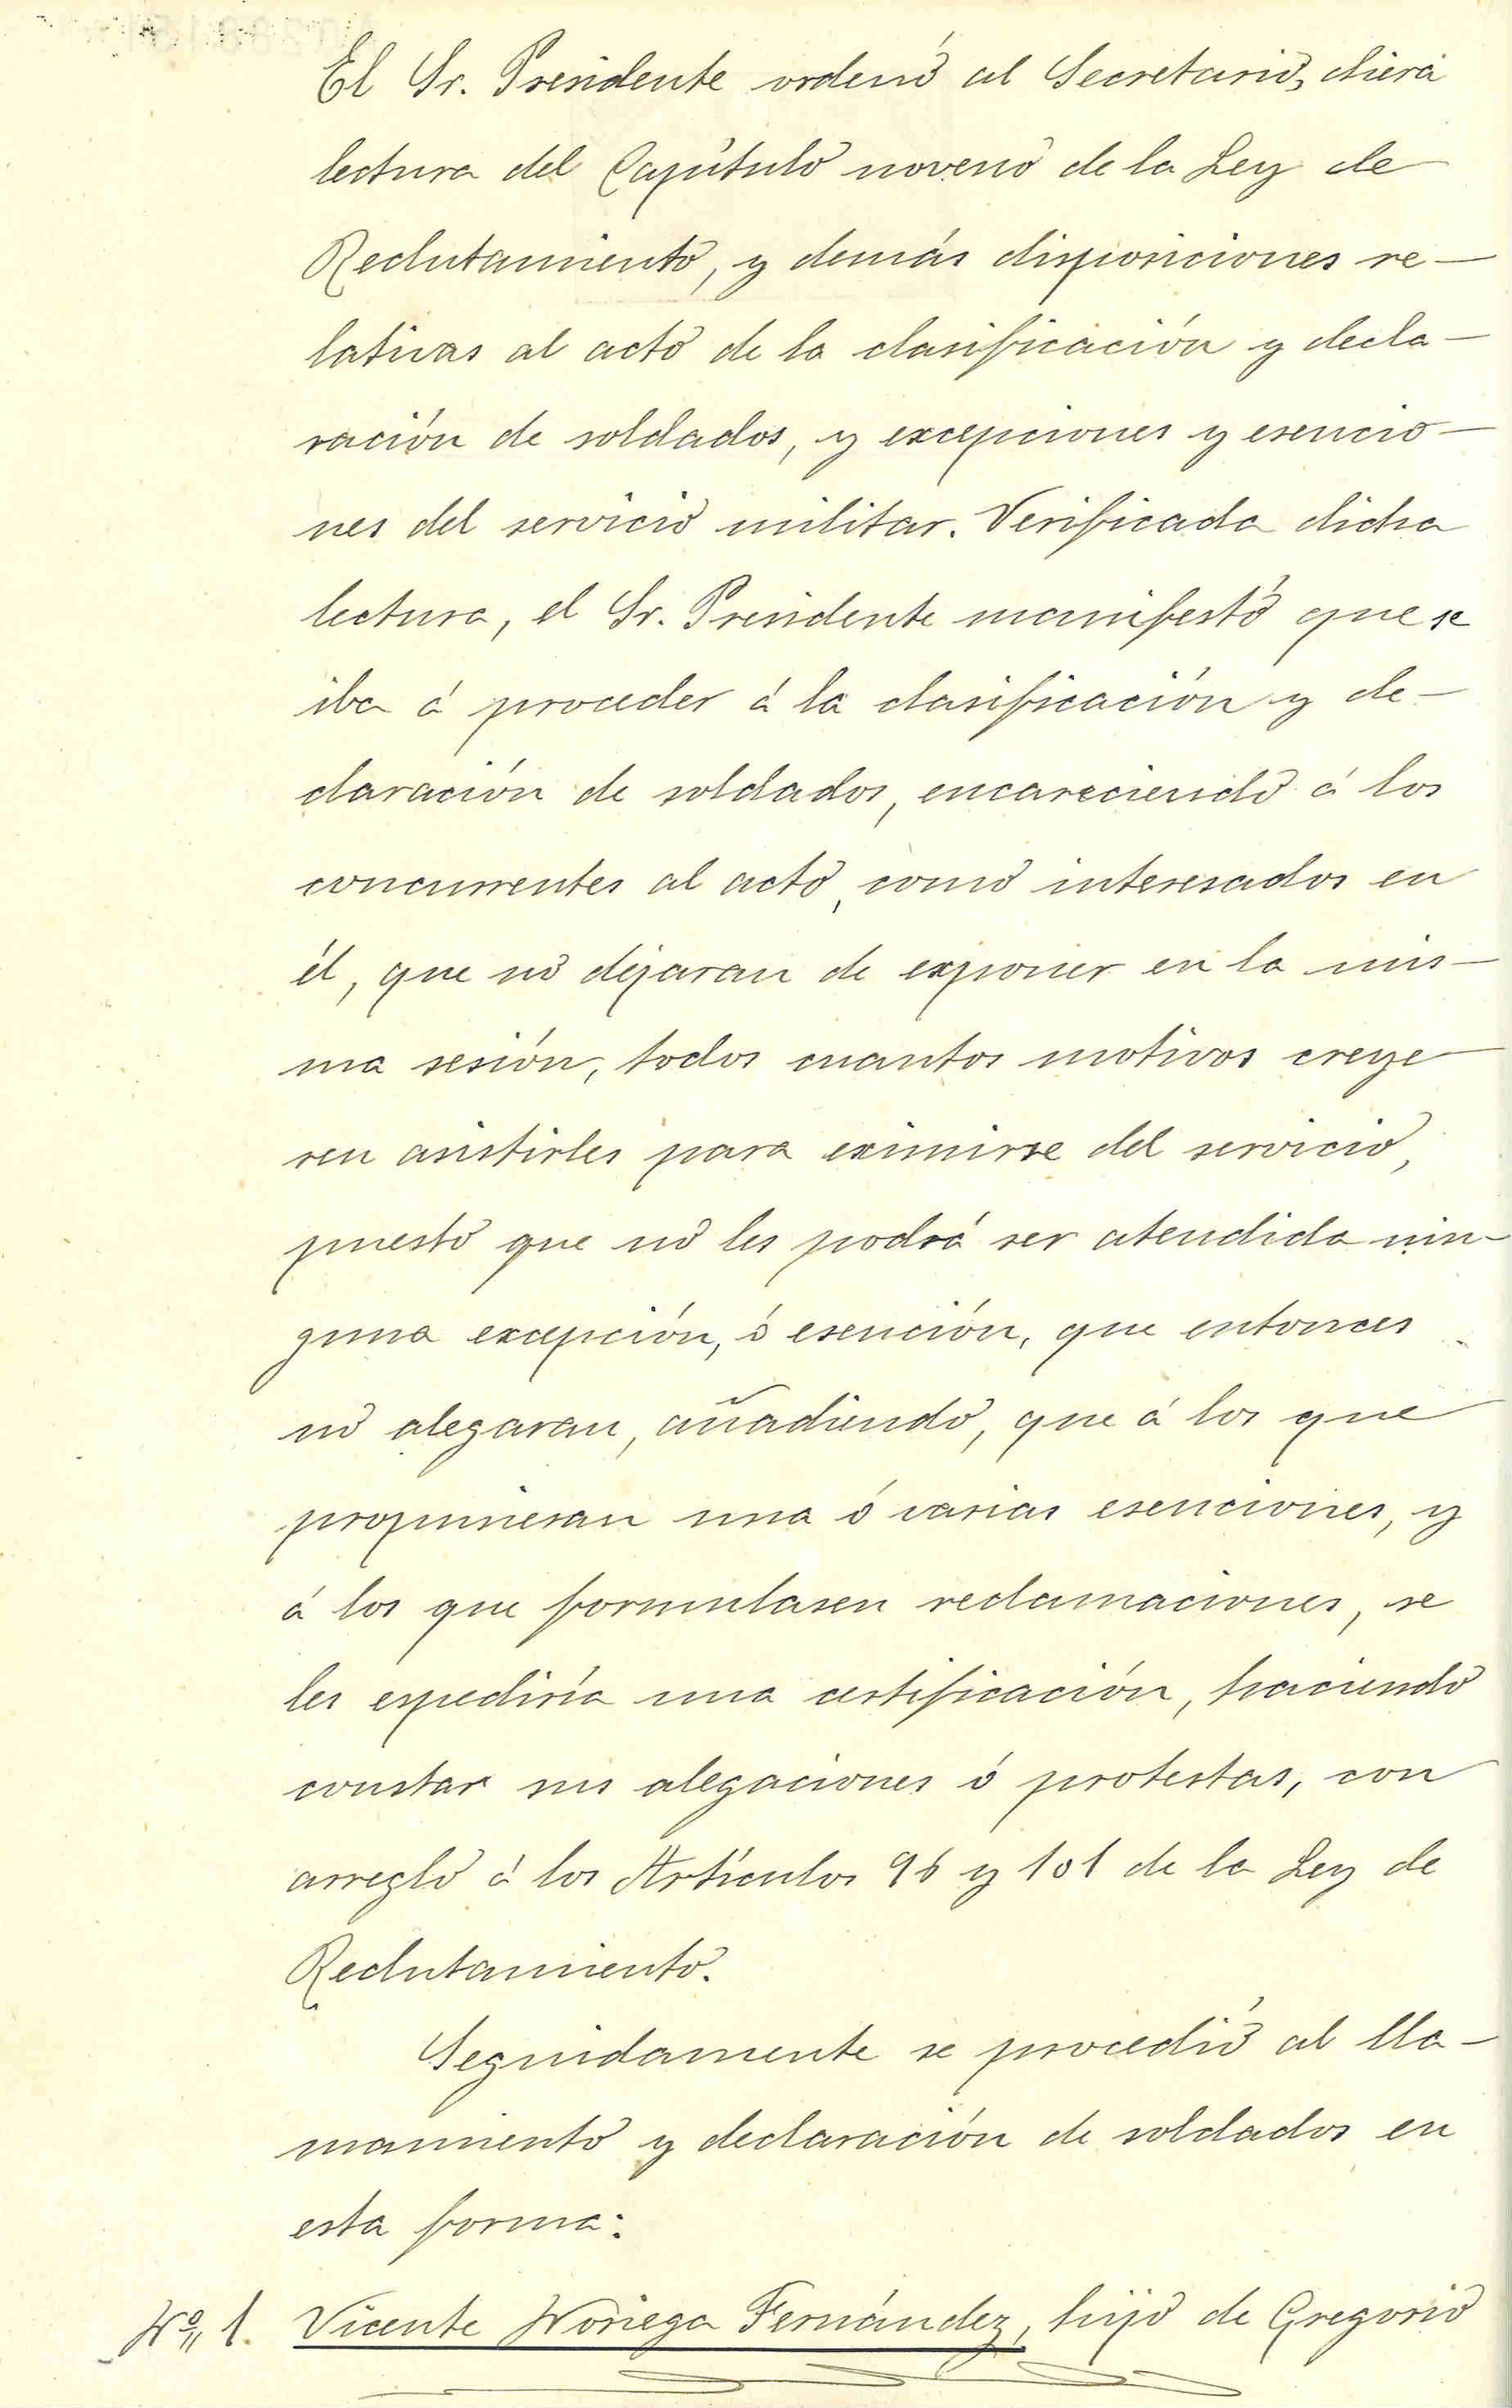 El Sr. Presidente ordenó al Secretario, diera
lectura del Capítulo noveno de la Ley de
Reclutamiento, y demás disposiciones re-
lativas al acto de la clasificación y decla-
ración de soldados, y excepciones y esencio-
nes del servicio militar. Verificada dicha
lectura, el Sr. Presidente manifestó que se
iba á proceder á la clasificación y de-
claración de soldados, encareciendo á los
concurrentes al acto, como interesados en
él, que no dejaran de exponer en la mis-
ma sesión, todos cuantos motivos creye-
ren asistirles para eximirse del servicio,
puesto que no les podrá ser atendida nin-
guna excepción, ó esención, que entonces
no alegaran, añadiendo, que á los que
propusieran una ó varias esenciones, y
á los que formulasen reclamaciones, se
les expediría una certificación, haciendo
constar sus alegaciones ó protestas, con
arreglo á los Artículos 96 y 101 de la Ley de
Reclutamiento.
Seguidamente se procedió al lla-
mamiento y declaración de soldados en
esta forma:
Nº,, 1. Vicente Noriega Fernández, hijo de Gregorio